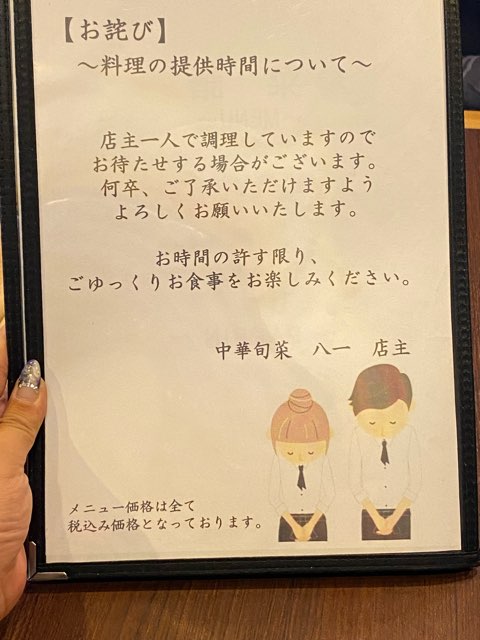 【お詫び】
～料理の提供時間について～
店主一人で調理していますので
お待たせする場合がございます。
何卒、ご了承いただけますよう
よろしくお願いいたします。
お時間の許す限り、
ごゆっくりお食事をお楽しみください。
中華旬菜　八一　店主
メニュー価格は全て
税込み価格となっております。